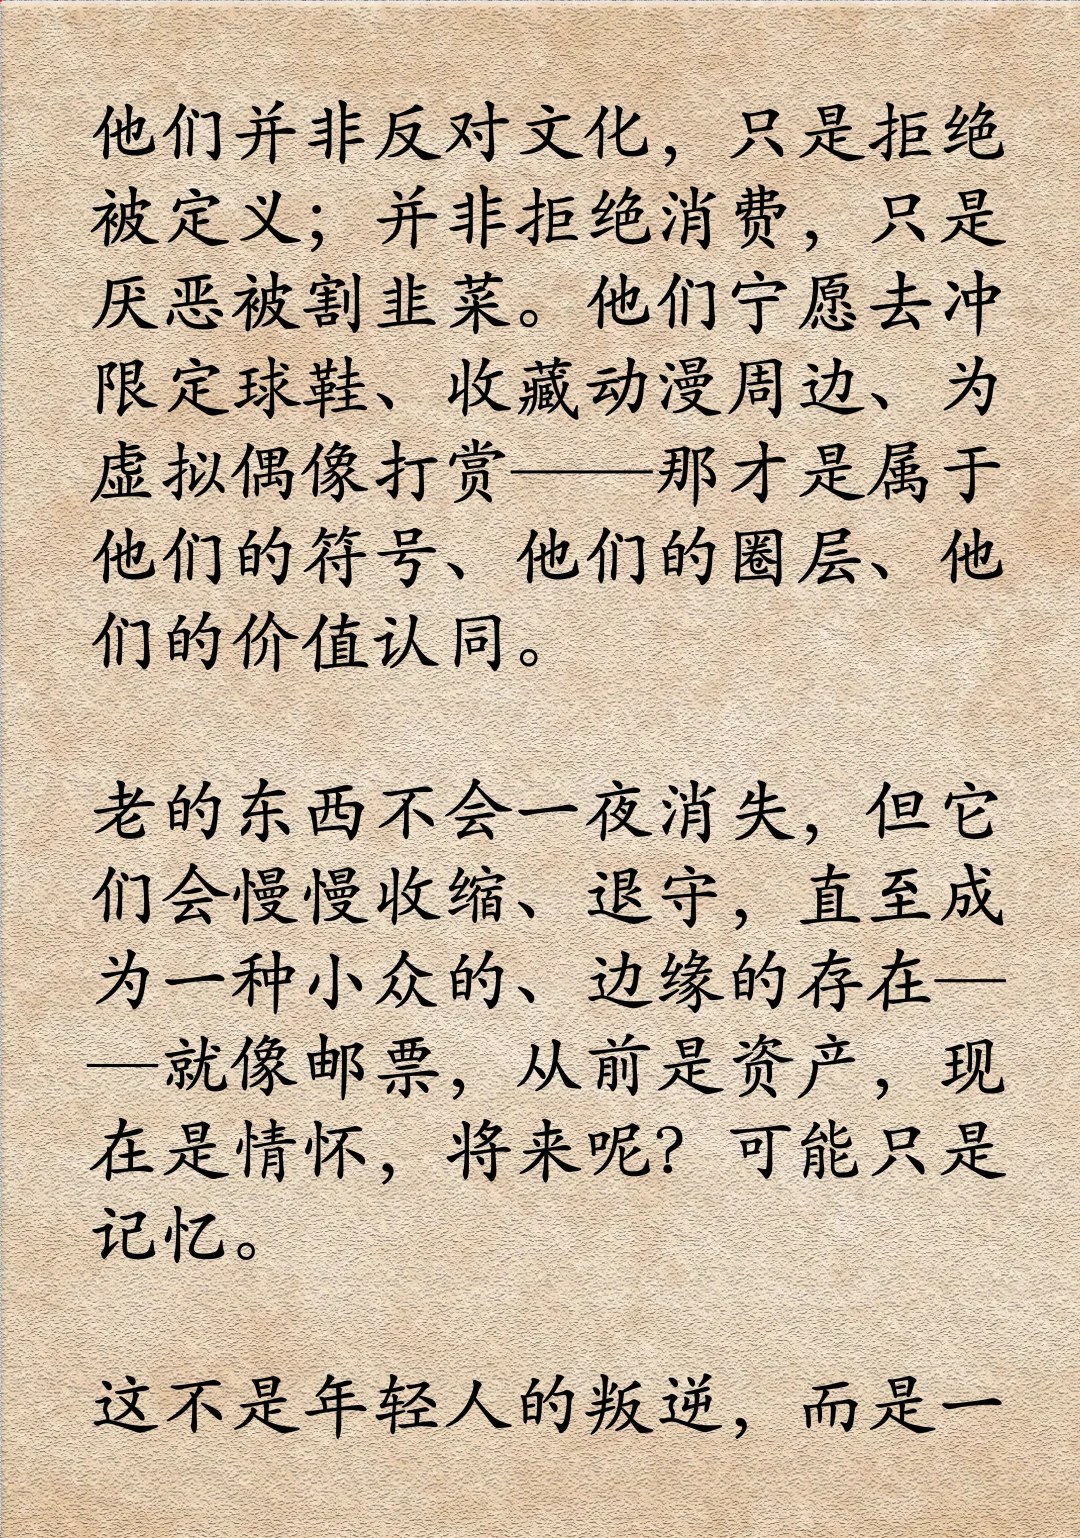 他们并非反对文化，只是拒绝
被定义；并非拒绝消费，只是
厌恶被割韭菜。他们宁愿去冲
限定球鞋、收藏动漫周边、为
虚拟偶像打赏——那才是属于
他们的符号、他们的圈层、他
们的价值认同。
老的东西不会一夜消失，但它
们会慢慢收缩、退守，直至成
为一种小众的、边缘的存在—
—就像邮票，从前是资产，现
在是情怀，将来呢？可能只是
记忆。
这不是年轻人的叛逆，而是一